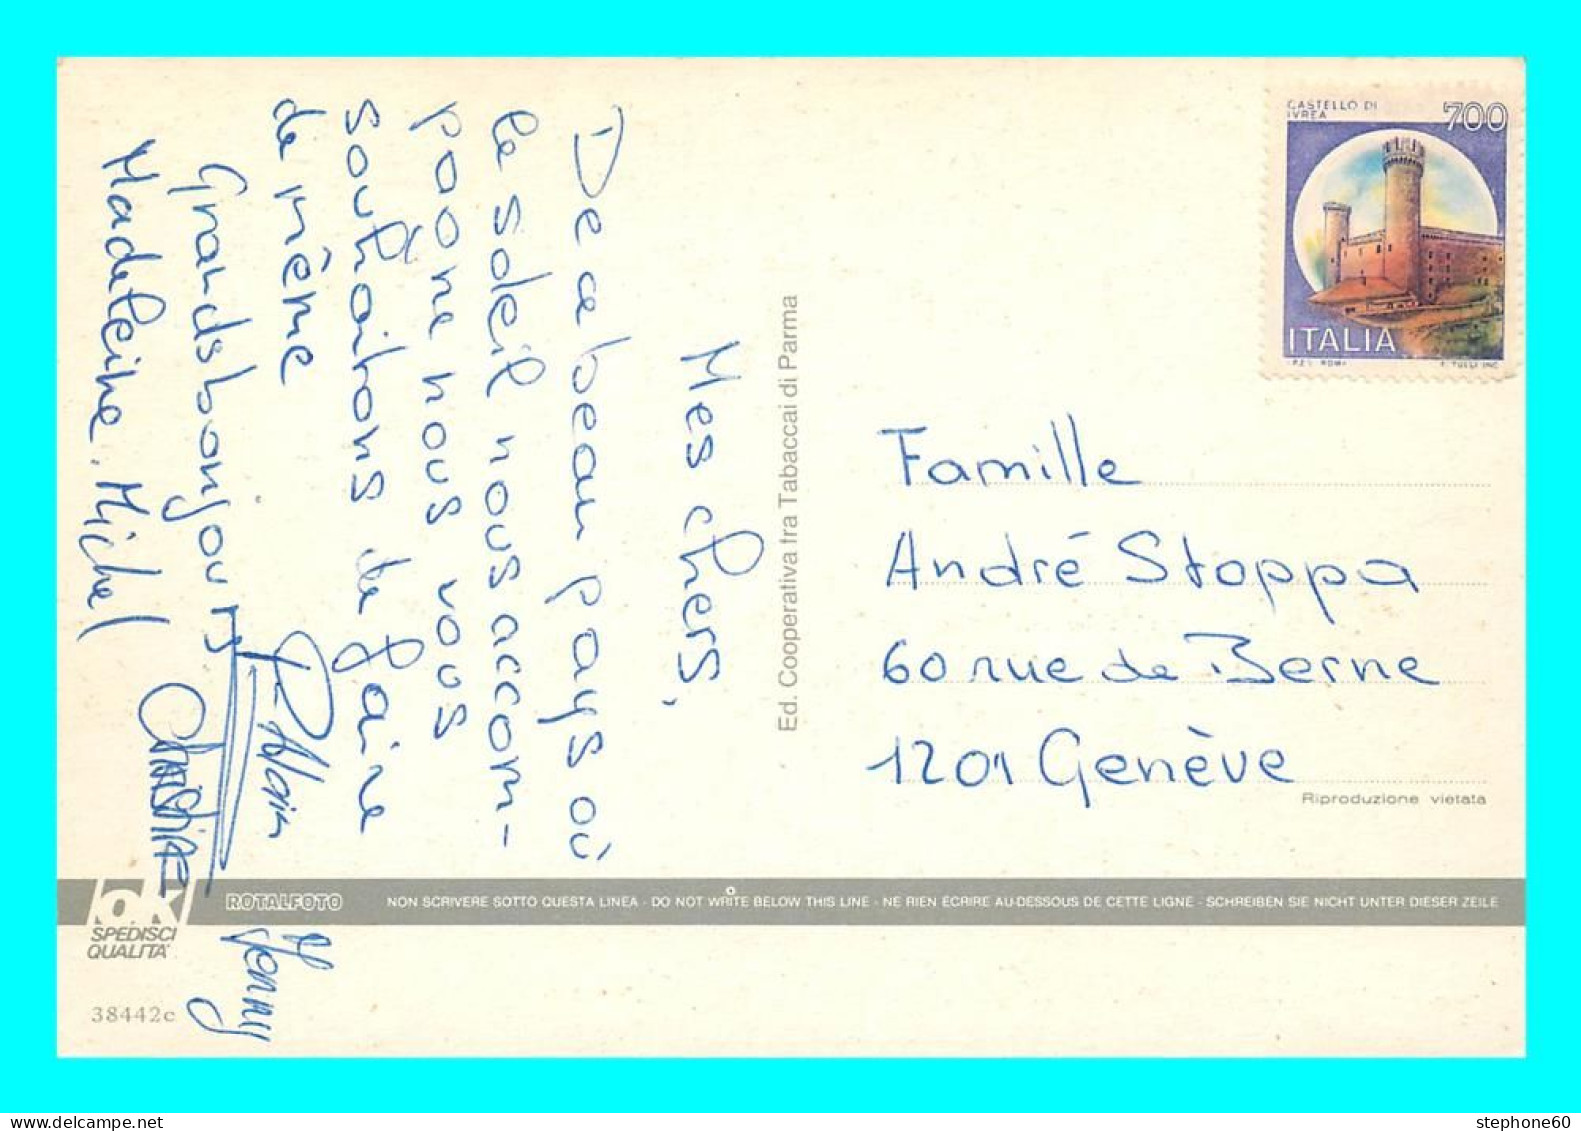 CASTELLO DI
IVREA
700
ITALIA
Mes chers,
De ce beau pays où
le soleil nous accom-
pagne nous vous
souhaitons de faire
de même
Grands bonjours
Madeleine. Michel
Alain
Christiane
Jenny
Ed. Cooperativa tra Tabaccai di Parma
Famille
André Stoppa
60 rue de Berne
1201 Genève
Riproduzione vietata
ok
SPEDISCI
QUALITA'
ROTALFOTO
NON SCRIVERE SOTTO QUESTA LINEA - DO NOT WRITE BELOW THIS LINE - NE RIEN ECRIRE AU-DESSOUS DE CETTE LIGNE - SCHREIBEN SIE NICHT UNTER DIESER ZEILE
38442c
stephone60